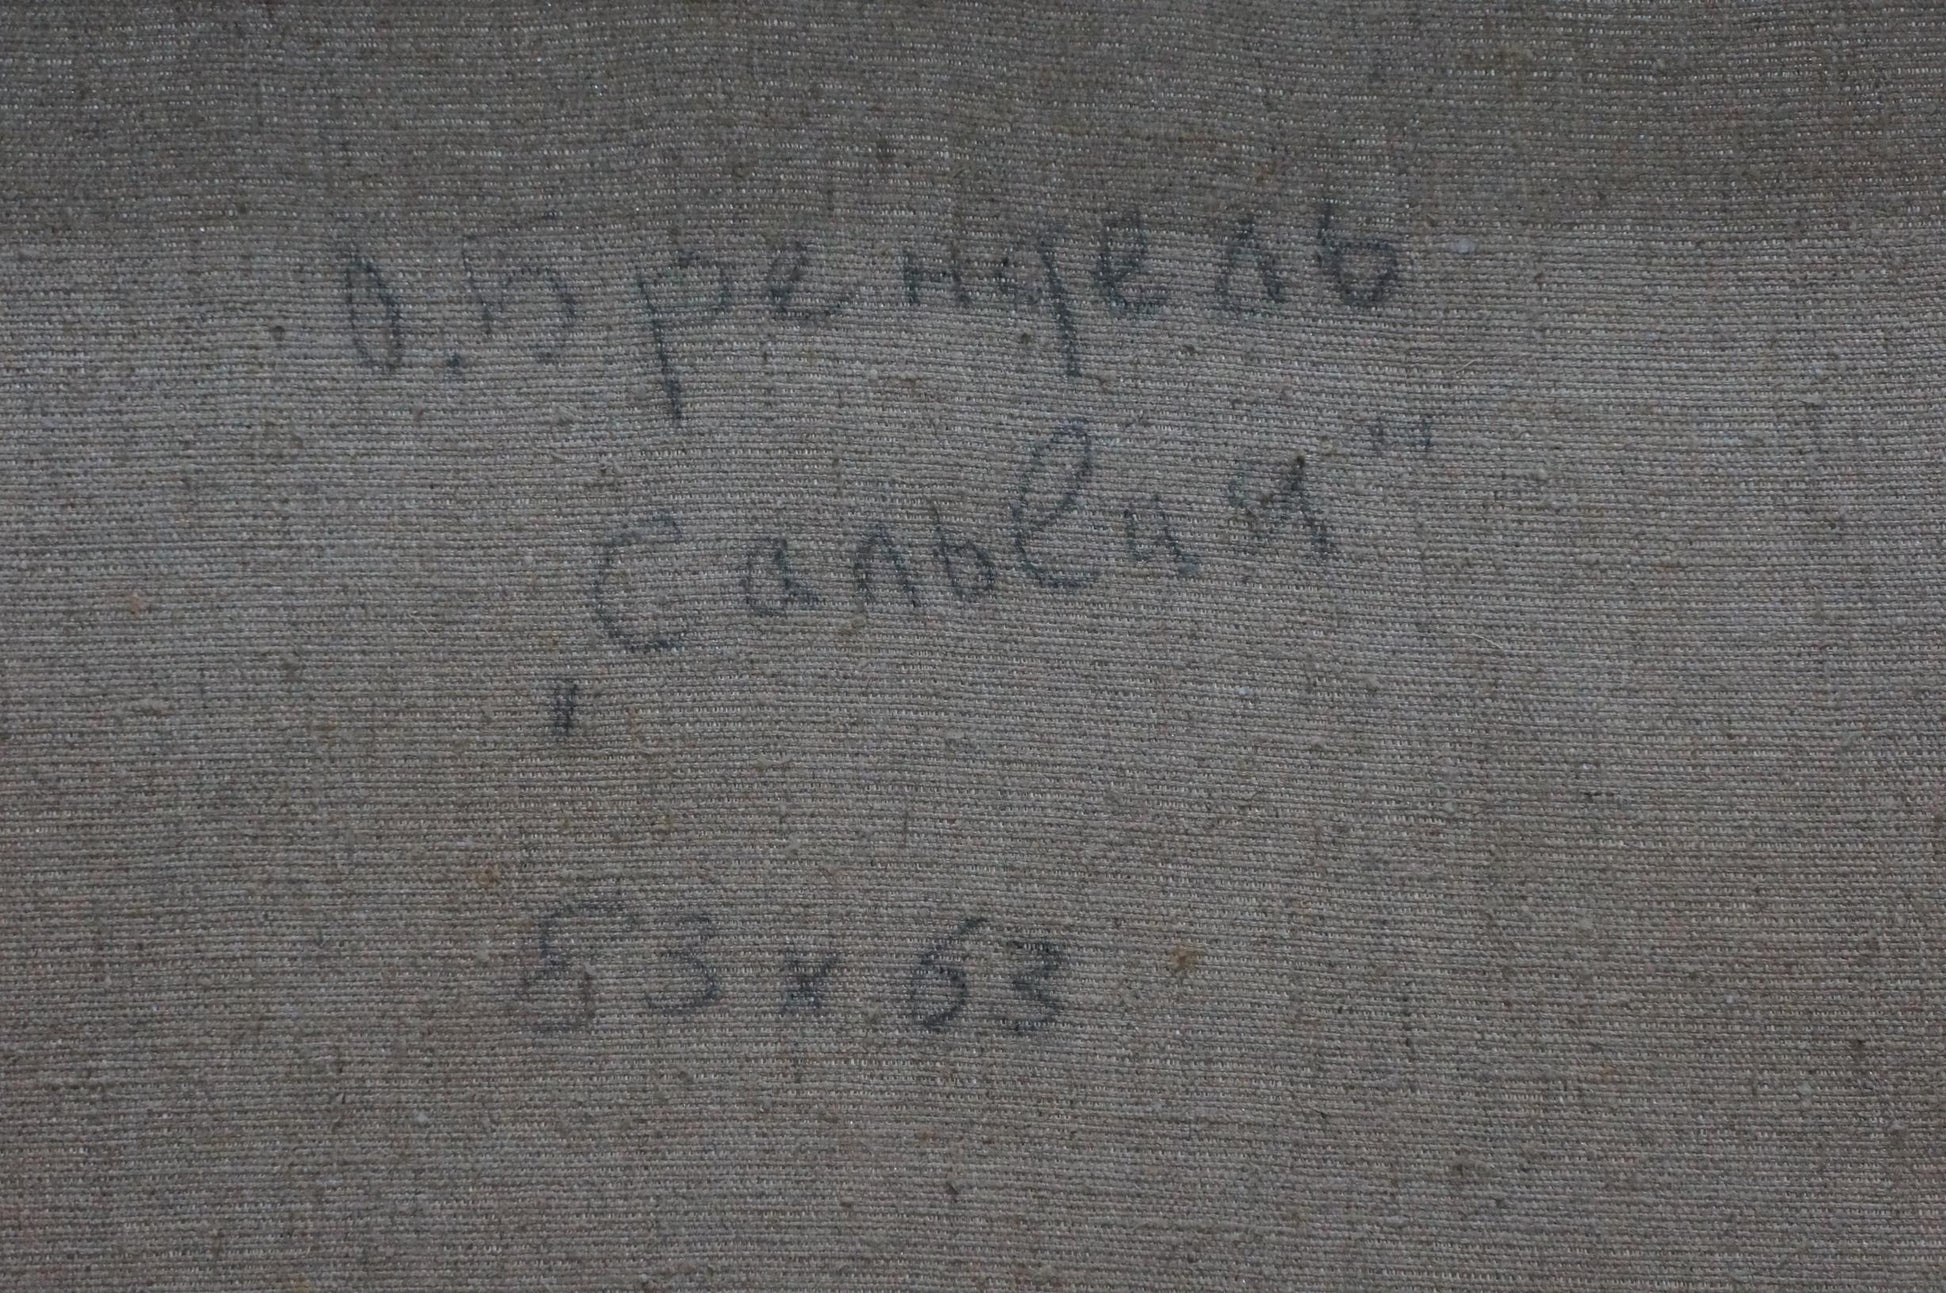 О. Брендель
"Сальвия"
53 x 63